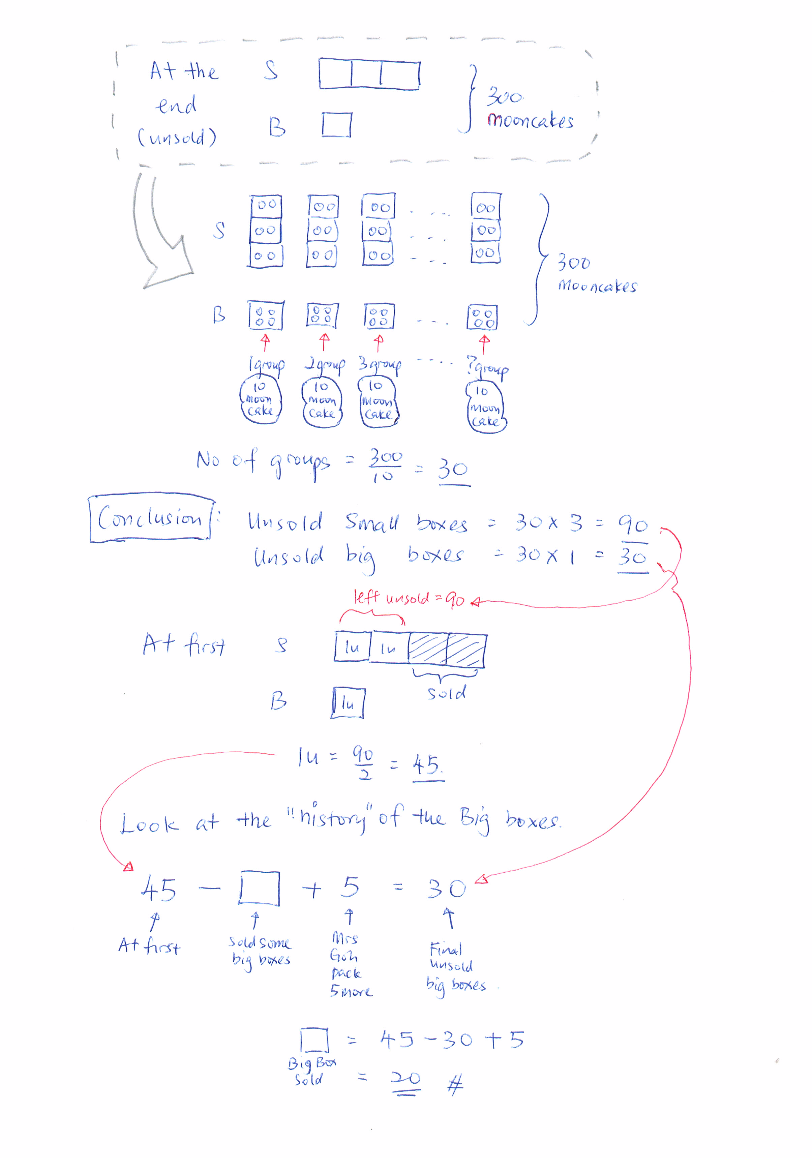 At the S
end
(unsold) B
300
mooncakes
S
300
Mooncakes
B
1group 2group 3group .... ?group
10 10 10 10
moon moon moon moon
cake cake cake cake
No of groups = 300/10 = 30
Conclusion: Unsold Small boxes = 30 x 3 = 90
Unsold big boxes = 30 x 1 = 30
left unsold = 90
At first S 1u 1u
sold
B 1u
1u = 90/2 = 45.
Look at the "history" of the Big boxes.
45 - □ + 5 = 30
At first
Sold some
big boxes
Mrs
Goh
pack
5 more
Final
unsold
big boxes
□ = 45 - 30 + 5
Big Box
Sold = 20 #